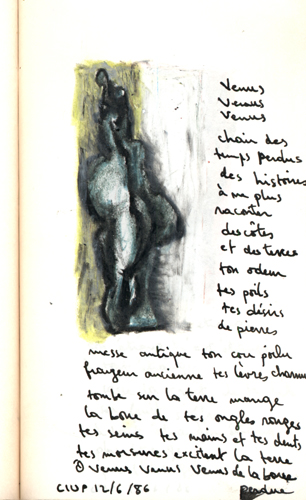 Venus
Venus
Venus
chair des
temps perdus
des histoires
à ne plus
raconter
des côtes
et des terres
ton odeur
tes poils
tes désirs
de pierres
masse antique ton cou poilu
frayeur ancienne tes lèvres charnues
tombe sur la terre mange
la boue de tes ongles rouges
tes seins tes mains et tes dents
tes morsures excitent la terre
O Venus Venus Venus de la boue
perdue
CIUP 12/6/86